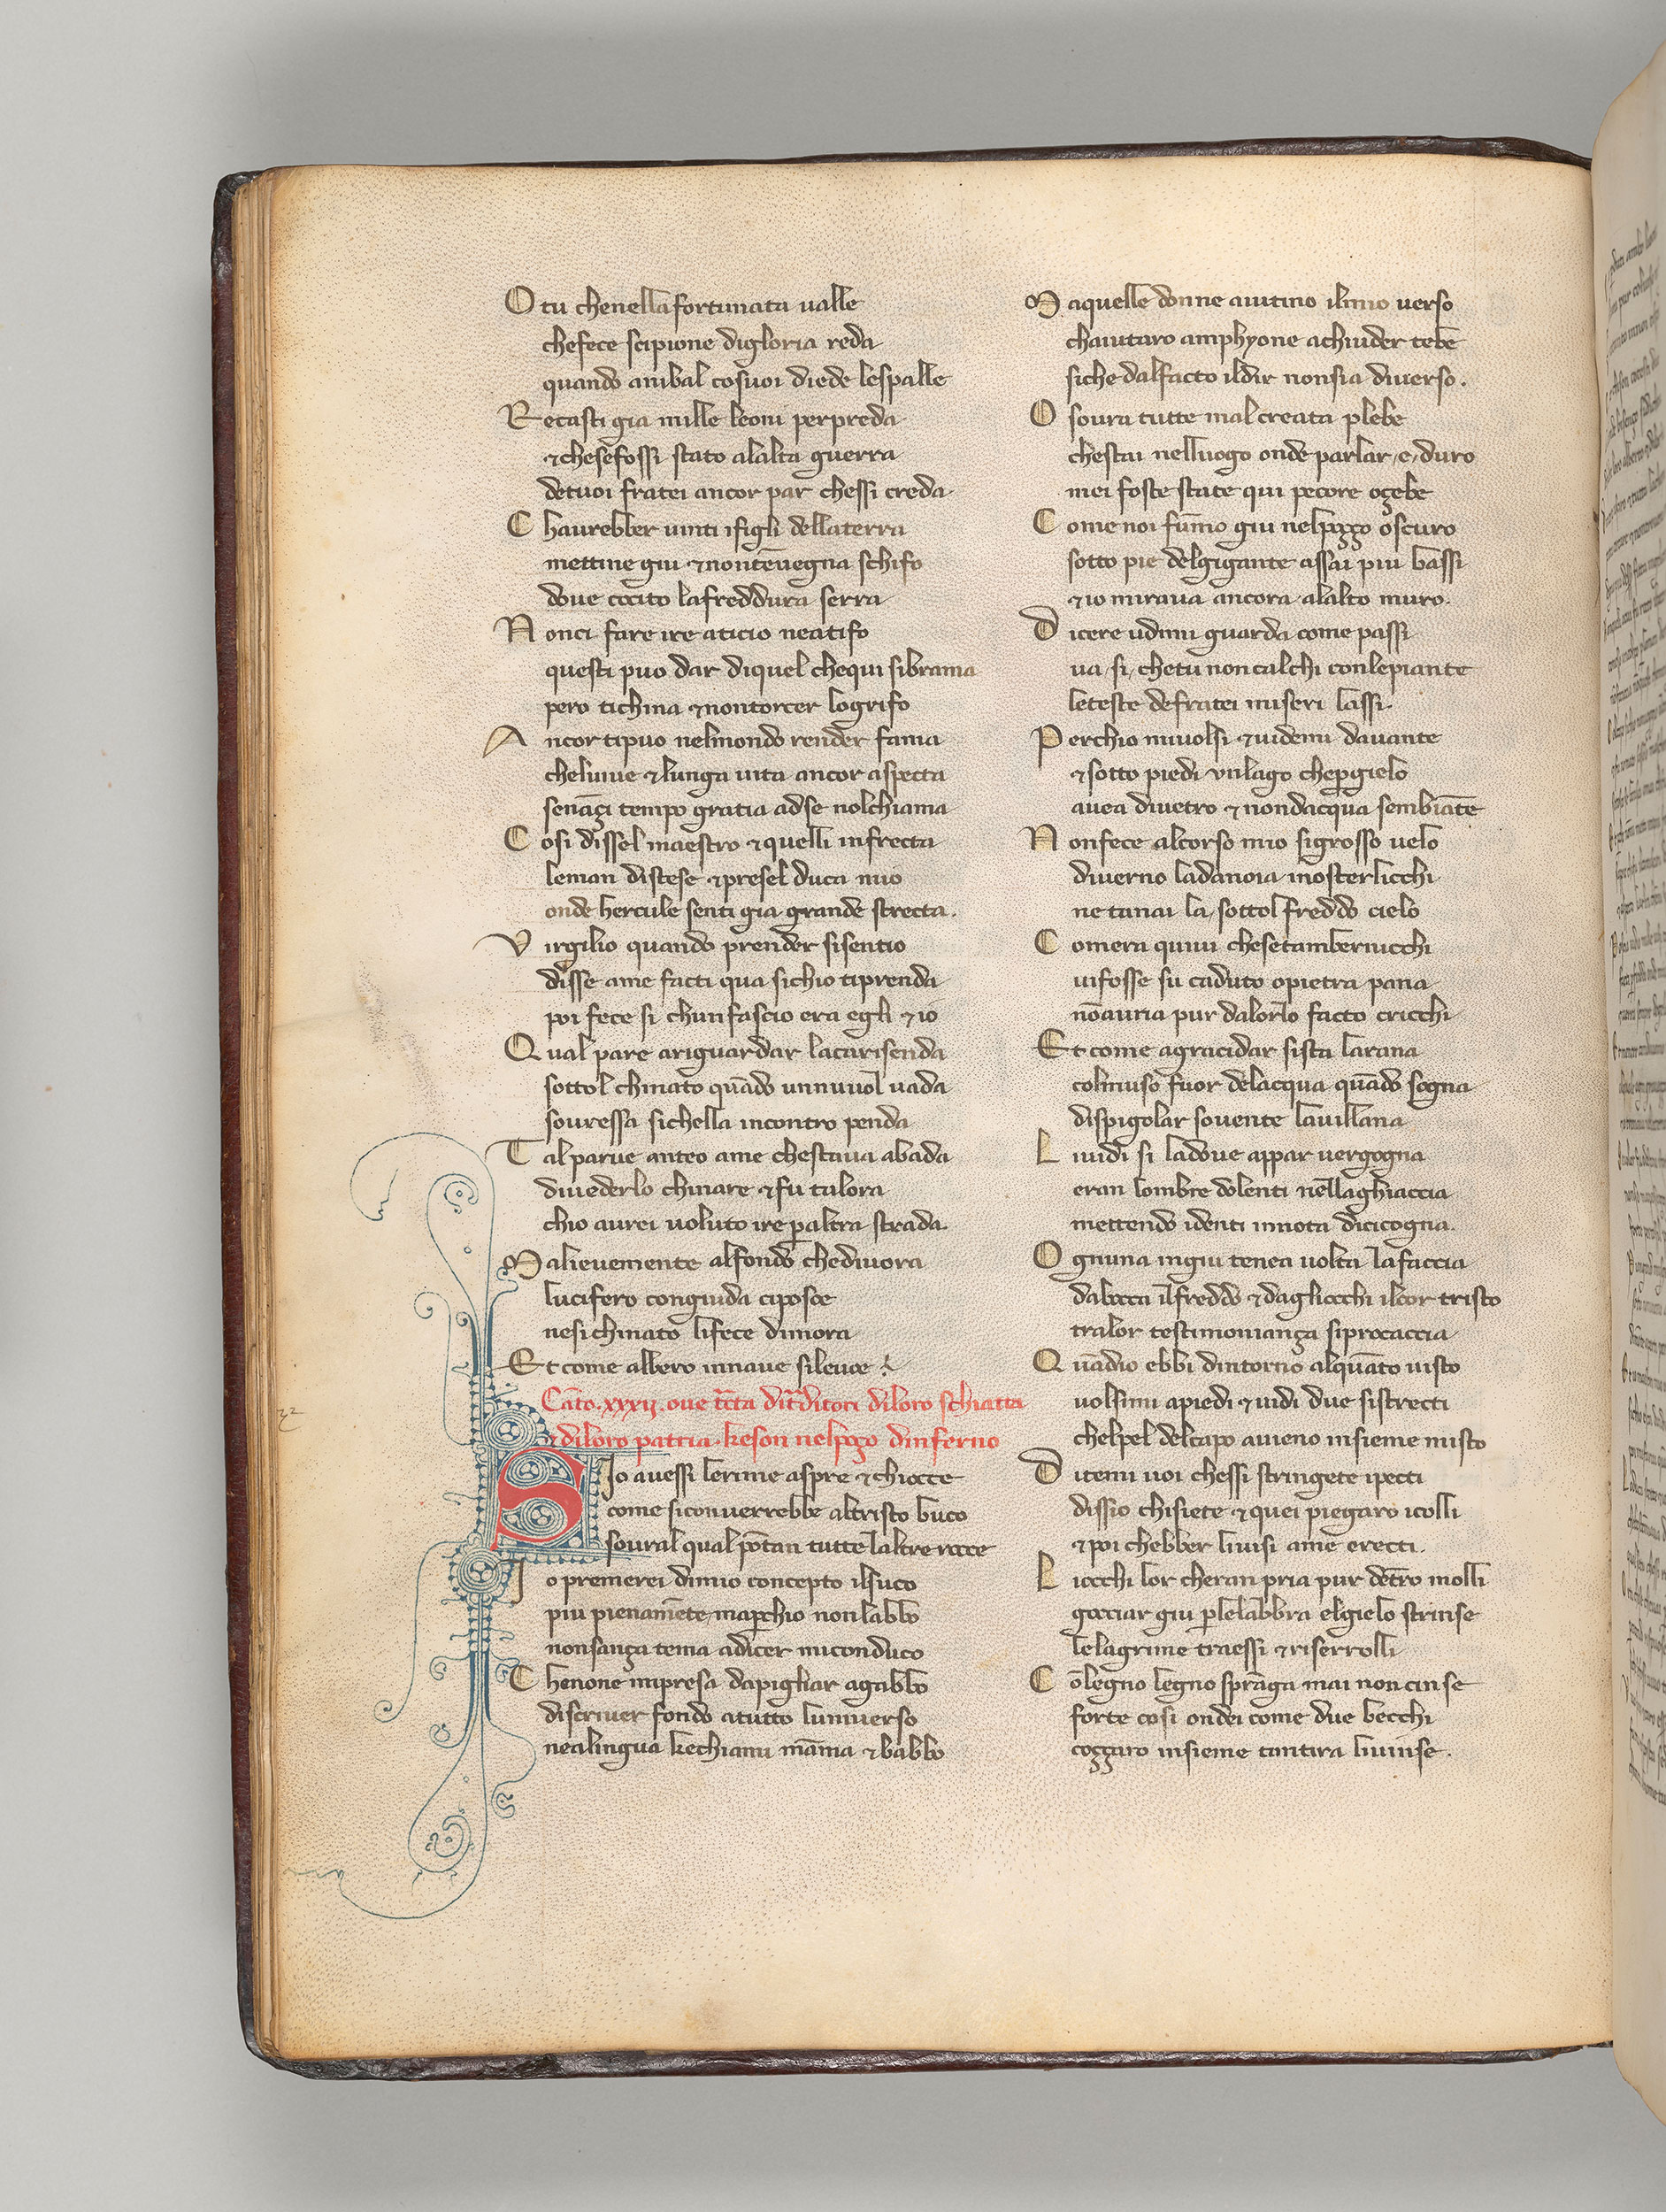 O tu chenella fortunata ualle
chefece scipione digloria reda
quando anibal cosuoi diede lespalle
R ecasti gia mille leoni perpreda
⁊chesefossi stato alalta guerra
detuoi fratei ancor par chessi creda
C haurebber uinti ifigli dellaterra
mettine giu ⁊nontēuegna schifo
doue cocito lafreddura serra
N onci fare ire aticio neatifo
questi puo dar diquel chequi sibrama
pero tichina ⁊nontorcer logrifo
A ncor tipuo nelmondo render fama
cheluiue ⁊lunga uita ancor aspecta
senāçi tempo gratia adse nolchiama
C osi dissel maestro ⁊quelli infrecta
leman distese ⁊presel duca mio
onde hercule senti gia grande strecta.
V irgilio quando prender sisentio
disse ame facti qua sichio tiprenda
poi fece si chunfascio era egli ⁊io
Q ual pare ariguardar lacarisenda
sottol chinato quādo unnuuol uada
souressa sichella incontro penda
T al parue anteo ame chestaua abada
diuederlo chinare ⁊fu talora
chio aurei uoluto ire paltra strada.
M alieuemente alfondo chediuora
lucifero conguida ciposce
nesi chinato lifece dimora
Et come albero innaue sileuoe
Cāto .xxxij. oue tc̄ta ditr̄ditori diloro schiatta
⁊diloro patria. keson nelpoço dinferno
S Io auessi lerime aspre ⁊chiocce
come siconuerrebbe altristo buco
soural qual pōtan tutte laltre rocce
I o premerei dimio concepto ilsuco
piu pienamēte mapchio nonlabbo
nonsança tema adicer miconduco
C henone impresa dapigliar agabbo
discriuer fondo atutto luniuerso
nealingua kechiami māma ⁊babbo
M aquelle donne aiutino ilmio uerso
chaiutaro amphyone achiuder tebe
siche dalfacto ildir nonsia diuerso.
O soura tutte mal creata plebe
chestai nelluogo onde parlar, e, duro
mei foste state qui pecore oçebe
C ome noi fūmo giu nelpoçço oscuro
sotto pie delgigante assai piu bassi
⁊io miraua ancora alalto muro.
D icere udimi guarda come passi
ua, si, chetu non calchi conlepiante
leteste defratei miseri lassi.
P erchio miuolsi ⁊uidemi dauante
⁊sotto piedi unlago chepgielo
auea diuetro ⁊nondacqua sembiāte
N onfece alcorso mio sigrosso uelo
diuerno ladanoia inosterlicchi
ne tanai la, sottol freddo cielo
C omera quiui chesetambernicchi
uifosse su caduto opietra pana
nōauria pur dalorlo facto cricchi
Et come agracidar sista larana
colmuso fuor delacqua quādo sogna
dispigolar souente lauillana
L iuidi si ladoue appar uergogna
eran lombre dolenti nellaghiaccia
mettendo identi innota dicicogna.
O gnuna ingiu tenea uolta lafaccia
dabocca ilfreddo ⁊dagliocchi ilcor tristo
tralor testimoniança siprocaccia
Q uādio ebbi dintorno alquāto uisto
uolsimi apiedi ⁊uidi due sistrecti
chelpel delcapo auieno insieme misto
D itemi uoi chessi stringete ipecti
dissio chisiete ⁊quei piegaro icolli
⁊poi chebber liuisi ame erecti.
L iocchi lor cheran pria pur dētro molli
gocciar giu plelabbra elgielo strinse
lelagrime traessi ⁊riserrolli
C ōlegno legno sprāga mai non cinse
forte cosi ondei come due becchi
coççaro insieme tantira liuinse.